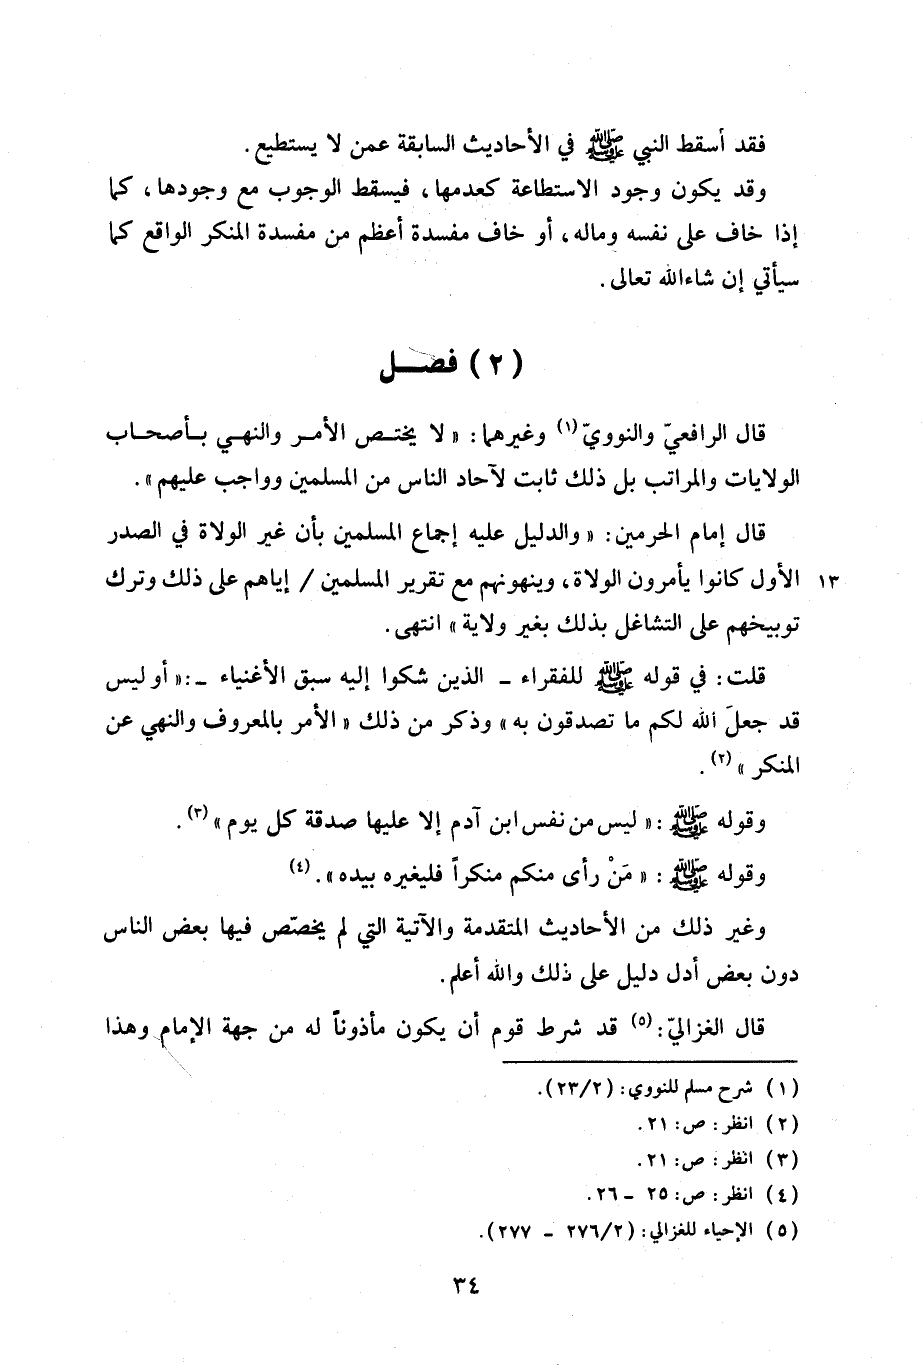 فقد أسقط النبي ﷺ في الأحاديث السابقة عمن لا يستطيع .
وقد يكون وجود الاستطاعة كعدمها ، فيسقط الوجوب مع وجودها ، كما
إذا خاف على نفسه وماله ، أو خاف مفسدة أعظم من مفسدة المنكر الواقع كما
سيأتي إن شاءالله تعالى .
( ٢ ) فصـــل
قال الرافعيّ والنوويّ (١) وغيرهما : « لا يختـص الأمـر والنهـي بـأصحـاب
الولايات والمراتب بل ذلك ثابت لآحاد الناس من المسلمين وواجب عليهم » .
قال إمام الحرمين : « والدليل عليه إجماع المسلمين بأن غير الولاة في الصدر
١٣ الأول كانوا يأمرون الولاة ، وينهونهم مع تقرير المسلمين / إياهم على ذلك وترك
توبيخهم على التشاغل بذلك بغير ولاية » انتهى .
قلت : في قوله ﷺ للفقراء ـ الذين شكوا إليه سبق الأغنياء ـ : « أو ليس
قد جعلَ الله لكم ما تصدقون به » وذكر من ذلك « الأمر بالمعروف والنهي عن
المنكر » (٢) .
وقوله ﷺ : « ليس من نفس ابن آدم إلا عليها صدقة كل يوم » (٣) .
وقوله ﷺ : « مَنْ رأى منكم منكراً فليغيره بيده » . (٤)
وغير ذلك من الأحاديث المتقدمة والآتية التي لم يخصّص فيها بعض الناس
دون بعض أدل دليل على ذلك والله أعلم .
قال الغزاليّ : (٥) قد شرط قوم أن يكون مأذوناً له من جهة الإمام وهذا
( ١ ) شرح مسلم للنووي : ( ٢٣/٢ ) .
( ٢ ) انظر : ص : ٢١ .
( ٣ ) انظر : ص : ٢١ .
( ٤ ) انظر : ص : ٢٥ ـ ٢٦ .
( ٥ ) الإحياء للغزالي : ( ٢٧٦/٢ ـ ٢٧٧ ) .
٣٤